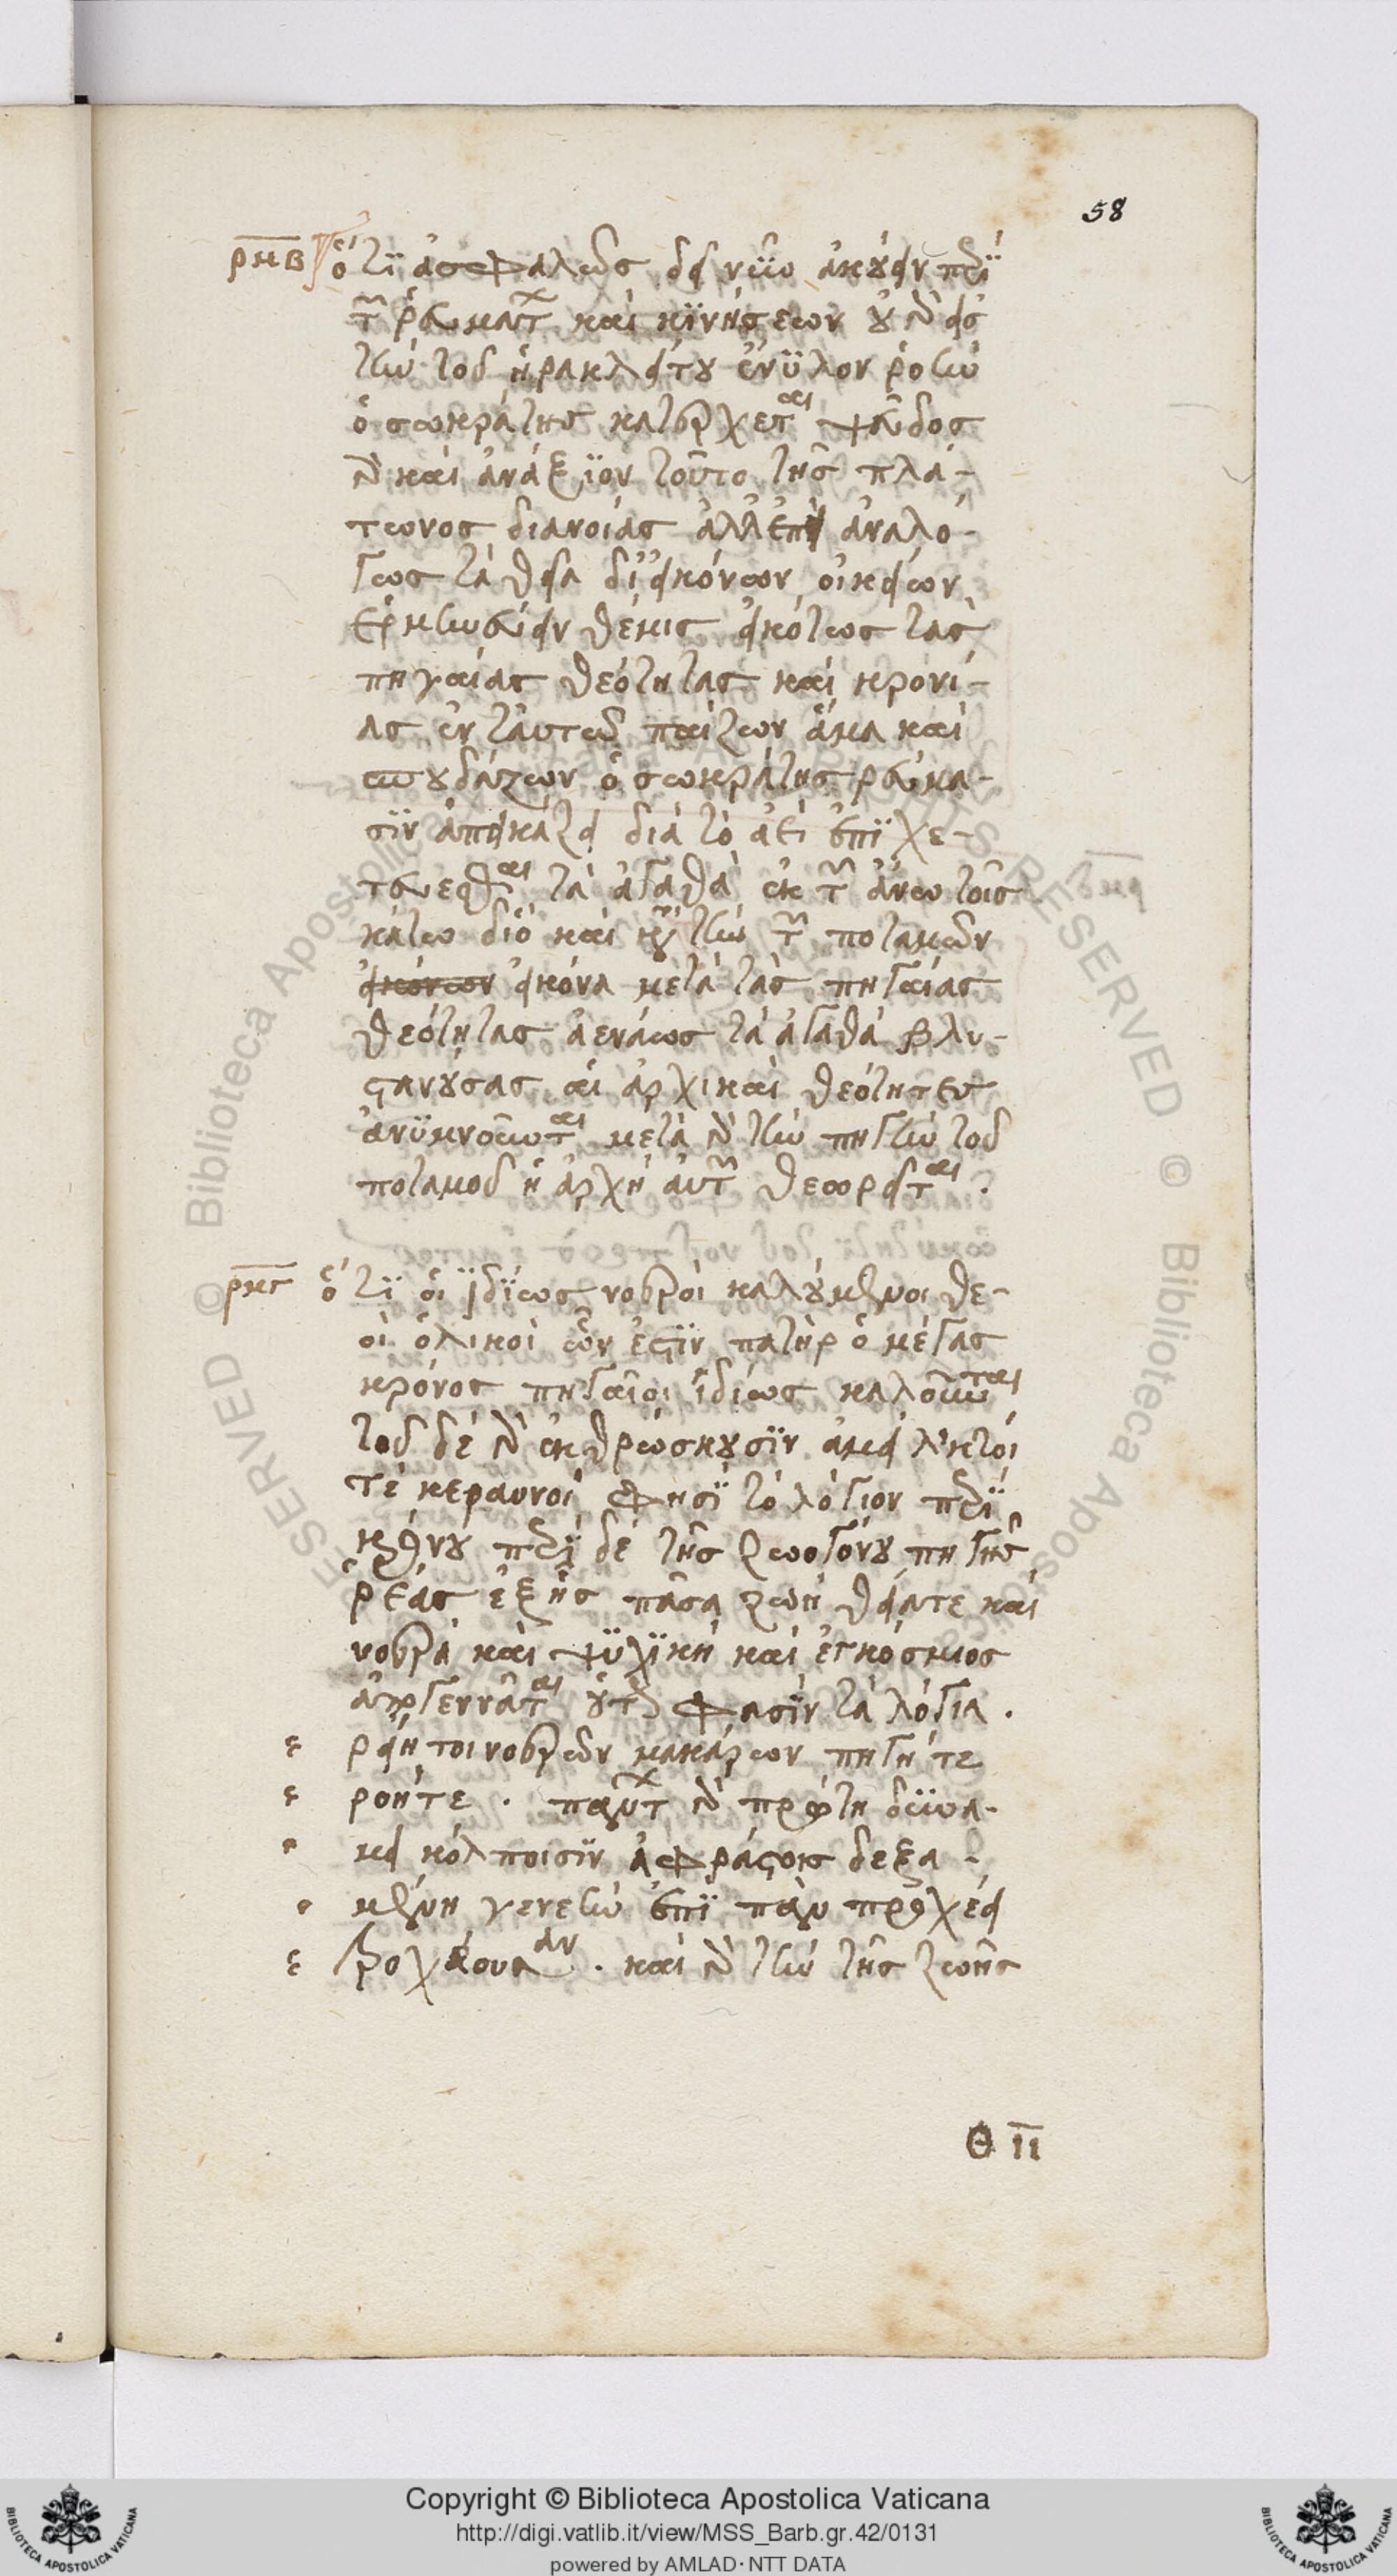 58
ρμβ ὅτι ἀσφαλῶς δεῖ νῦν ἀκούειν περὶ
τῶν ῥευμάτων καὶ κινήσεων οὐ γὰρ εἰς
τὴν τοῦ ἡρακλείτου ἔνυλον ῥοὴν
ὁ σωκράτης κατέρχεται ψεῦδος
γὰρ καὶ ἀνάξιον τοῦτο τῆς πλά-
τωνος διανοίας ἀλλ' ἐπεὶ ἀναλό-
γως τὰ θεῖα δι' εἰκόνων οἰκείων
ἑρμηνεύειν θέμις εἰκότως τὰς
πηγαίας θεότητας καὶ κρονί-
ας ἐν ταυτῶ παίζων ἅμα καὶ
σπουδάζων ὁ σωκράτης ρεύμα-
σιν ἀπεικάζει διὰ τὸ ἀεὶ ἐπιχε-
τεύεσθαι τὰ ἀγαθὰ ἐκ τῶν ἄνω τοῖς
κάτω διὸ καὶ κατὰ τὴν τῶν ποταμῶν
εἰκόνων εἰκόνα μετὰ τὰς πηγαίας
θεότητας ἀενάως τὰ ἀγαθὰ βλυ-
στανούσας αἱ ἀρχικαὶ θεότητες
ἀνυμνοῦνται μετὰ γὰρ τὴν πηγὴν τοῦ
ποταμοῦ ἡ ἀρχὴ αὐτῶν θεωρεῖται .
ρμγ ὅτι οἱ ἰδίως νοεροὶ καλούμενοι θε-
οὶ ὁλικοὶ ὧν ἐστὶν πατὴρ ὁ μέγας
κρόνος πηγαῖοι ἰδίως καλοῦνται
τοῦ δὲ γὰρ ἐκθρώσκουσιν ἀμείλικτοί
τὲ κεραυνοὶ φησὶ τὸ λόγιον περὶ
κρόνου περὶ δὲ τῆς ζωογόνου πηγῆς
ῥέας ἐξ ἧς πᾶσα ζωὴ θείατε καὶ
νοερὰ καὶ ψυχικὴ καὶ ἐγκόσμιος
ἀπογεννᾶται οὕτως φασὶν τὰ λόγια .
ρείη τοι νοερῶν μακάρων πηγήτε
ροήτε . πάντων γὰρ πρώτη δύνα-
μει κόλποισιν ἀφράστοις δεξα-
μένη γενεὴν ἐπὶ πᾶν προχέει
τροχάουσαν . καὶ γὰρ τὴν τῆς ζωῆς
Θ ιι
Copyright © Biblioteca Apostolica Vaticana
http://digi.vatlib.it/view/MSS_Barb.gr.42/0131
powered by AMLAD · NTT DATA